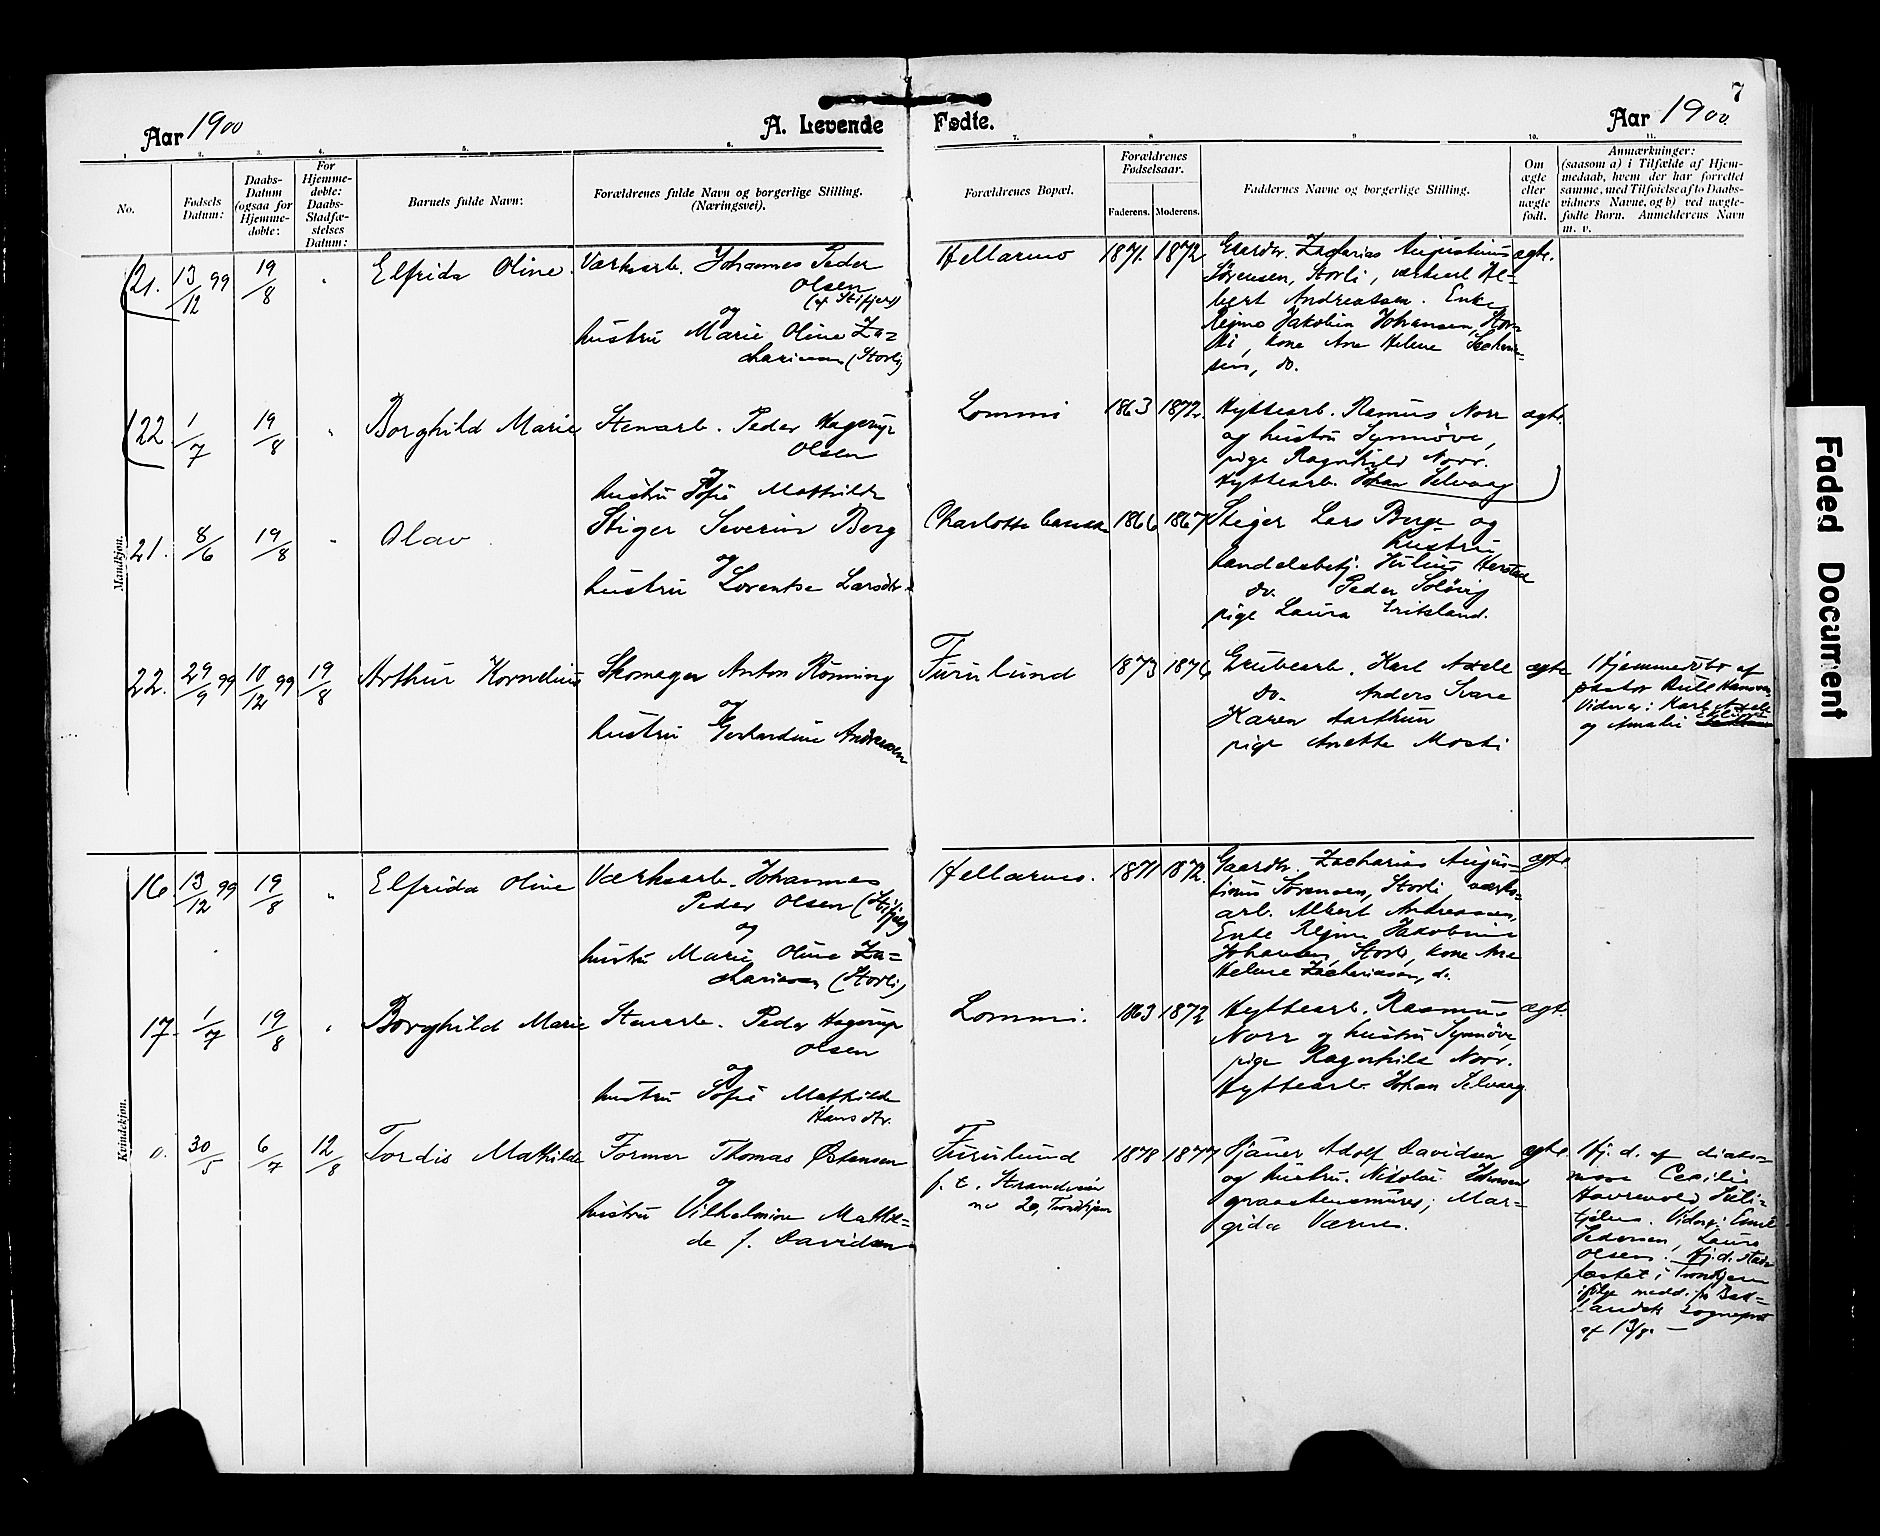 7
Aar 1900
A. Levende Fødte.
Aar 1900.
1. 2. 3. 4. 5. 6. 7. 8. 9. 10. 11.
No.
Fødsels Datum:
Daabs-Datum (ogsaa for Hjemmedøbte:
For Hjemmedøbte: Daabs-Stadfæstelses Datum:
Barnets fulde Navn:
Forældrenes fulde Navn og borgerlige Stilling. (Næringsvei).
Forældrenes Bopæl.
Forældrenes Fødselsaar.
Faderens. Moderens.
Faddernes Navne og borgerlige Stilling.
Om ægte eller uægte født.
Anmærkninger:
(saasom a) i Tilfælde af Hjem-
medaab, hvem der har forrettet
samme, med Tilføielse af to Daabs-
vidners Navne, og b) ved uægte-
fødte Børn. Anmelderens Navn
m. v.
Mandkjøn.
(21. 13/12 99 19/8 " Elfrida Oline
Værksarb. Johannes Peder
Olsen
og
hustru Marie Oline Za=
chariesen (Storli)
Hellarmo 1871. 1872
Gaardbr. Zacharias Augustinus
Sörensen, Storli, værksarb. Al-
bert Andreassen. Enke
Regine Jakobine Johansen, Stor-
li, kone Ane Helene Zacharia-
sen, do.
ægte.
(22 1/7 19/8 " Borghild Marie
Stenarb. Peder Hagerup
Olsen
og
hustru Sofie Mathilde
Lommi 1863 1872.
Hyttearb. Rasmus Norr
og hustru Synnöve,
pige Ragnhild Norr.
Hyttearb. Johan Selvaag
ægte.
21. 8/6 19/8 " Olav
Stiger Severin Berg
og
hustru Lorentse Larsdtr.
Charlotta 1866 1867
Stiger Lars Berge og
hustru
handelsbetj. Julius
do. Peder Solövig
pige Laura
22. 29/9 99 10/12 99 19/8 Arthur Kornelius
Skomager Anton Rönning
og
hustru Gerhardine Andreassen
Furulund 1873 1876
Grubearb. Karl Axele
do. Anders Svare
Karen Aarthun
pige Anette Mosti
ægte
Hjemmedöbt af
pastor Bull Hansen,
Vidner: Karl Axele
og Amalie
Kvindekjøn.
16 13/12 99 19/8 " Elfrida Oline
Værksarb. Johannes
Peder Olsen
og
hustru Marie Oline Za=
chariesen (Storli)
Hellarmo. 1871 1872.
Gaardbr. Zacharias Augus-
tinus Sörensen, Storli, værks-
arb. Albert Andreassen,
Enke Regine Jakobine
Johansen, Storli, kone Ane
Helene Zachariasen, do.
ægte.
17. 1/7 19/8 " Borghild Marie
Stenarb. Peder Hagerup
Olsen
og
hustru Sofie Mathilde
Hansdtr.
Lommi. 1863 1872
Hyttearb. Rasmus
Norr og hustru Synnöve,
pige Ragnhild Norr.
Hyttearb. Johan Selvaag
ægt.
0. 30/5 6/7 12/8 Tordis Mathilde
Former Thomas Östensen
og
hustru Vilhelmine Mathil=
de f. Davidsen
Furulund
f. t. Strandveien
no 20, Trondhjem
1878 1877
Adolf Davidsen
og hustru. Nikolai Johansen
graastensmurer, Mar-
gida Værnes.
ægte.
Hj. d. af diako-
nisse Cecilie
Havrevold, Suli-
tjelma. Vidner: Emil
Pedersen, Laura
Olsen. Hj.d. stad-
fæstet i Trondhjem
ifölge medd. fra Bak=
landets sogneprest
af 13/8. —
Faded Document